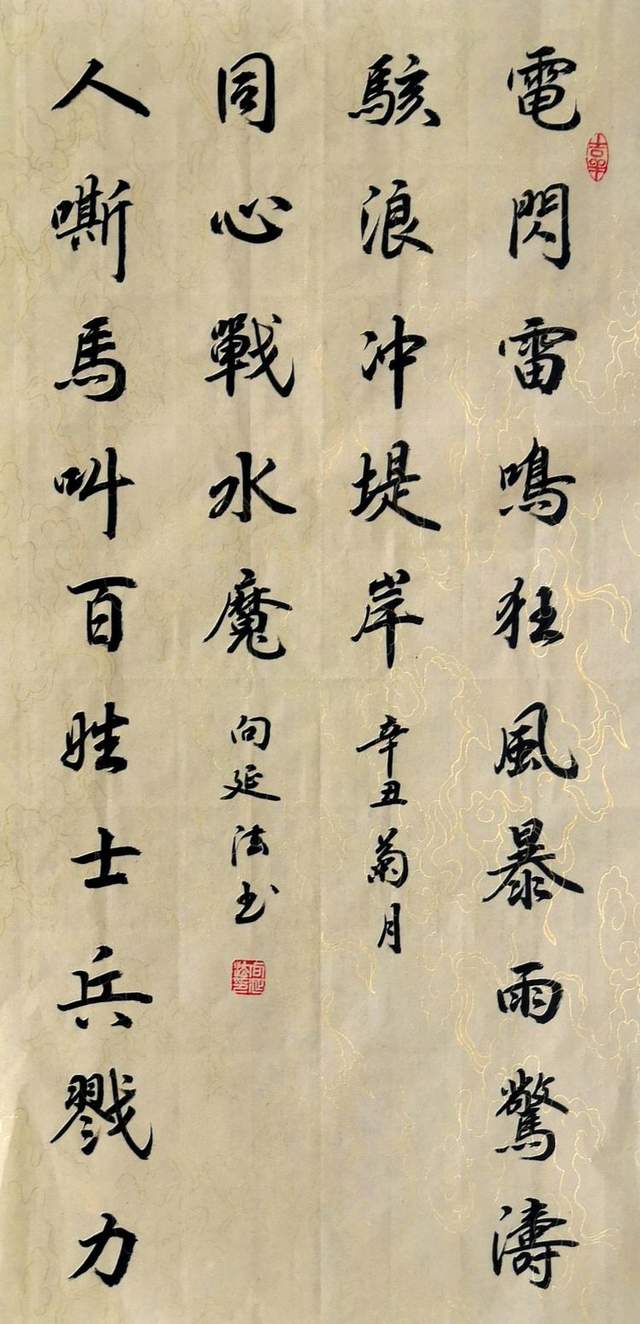 電閃雷鳴狂風暴雨驚濤
駭浪冲堤岸
辛丑菊月
人嘶馬叫百姓士兵戮力
同心戰水魔
向延法书